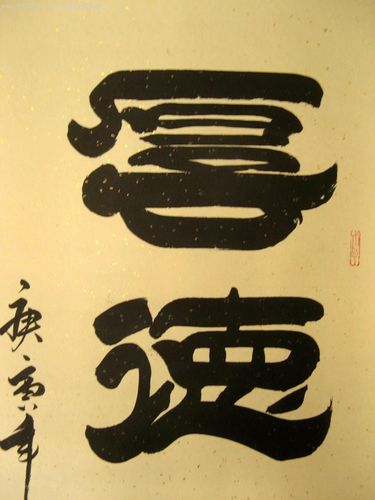 厚德
庚寅年